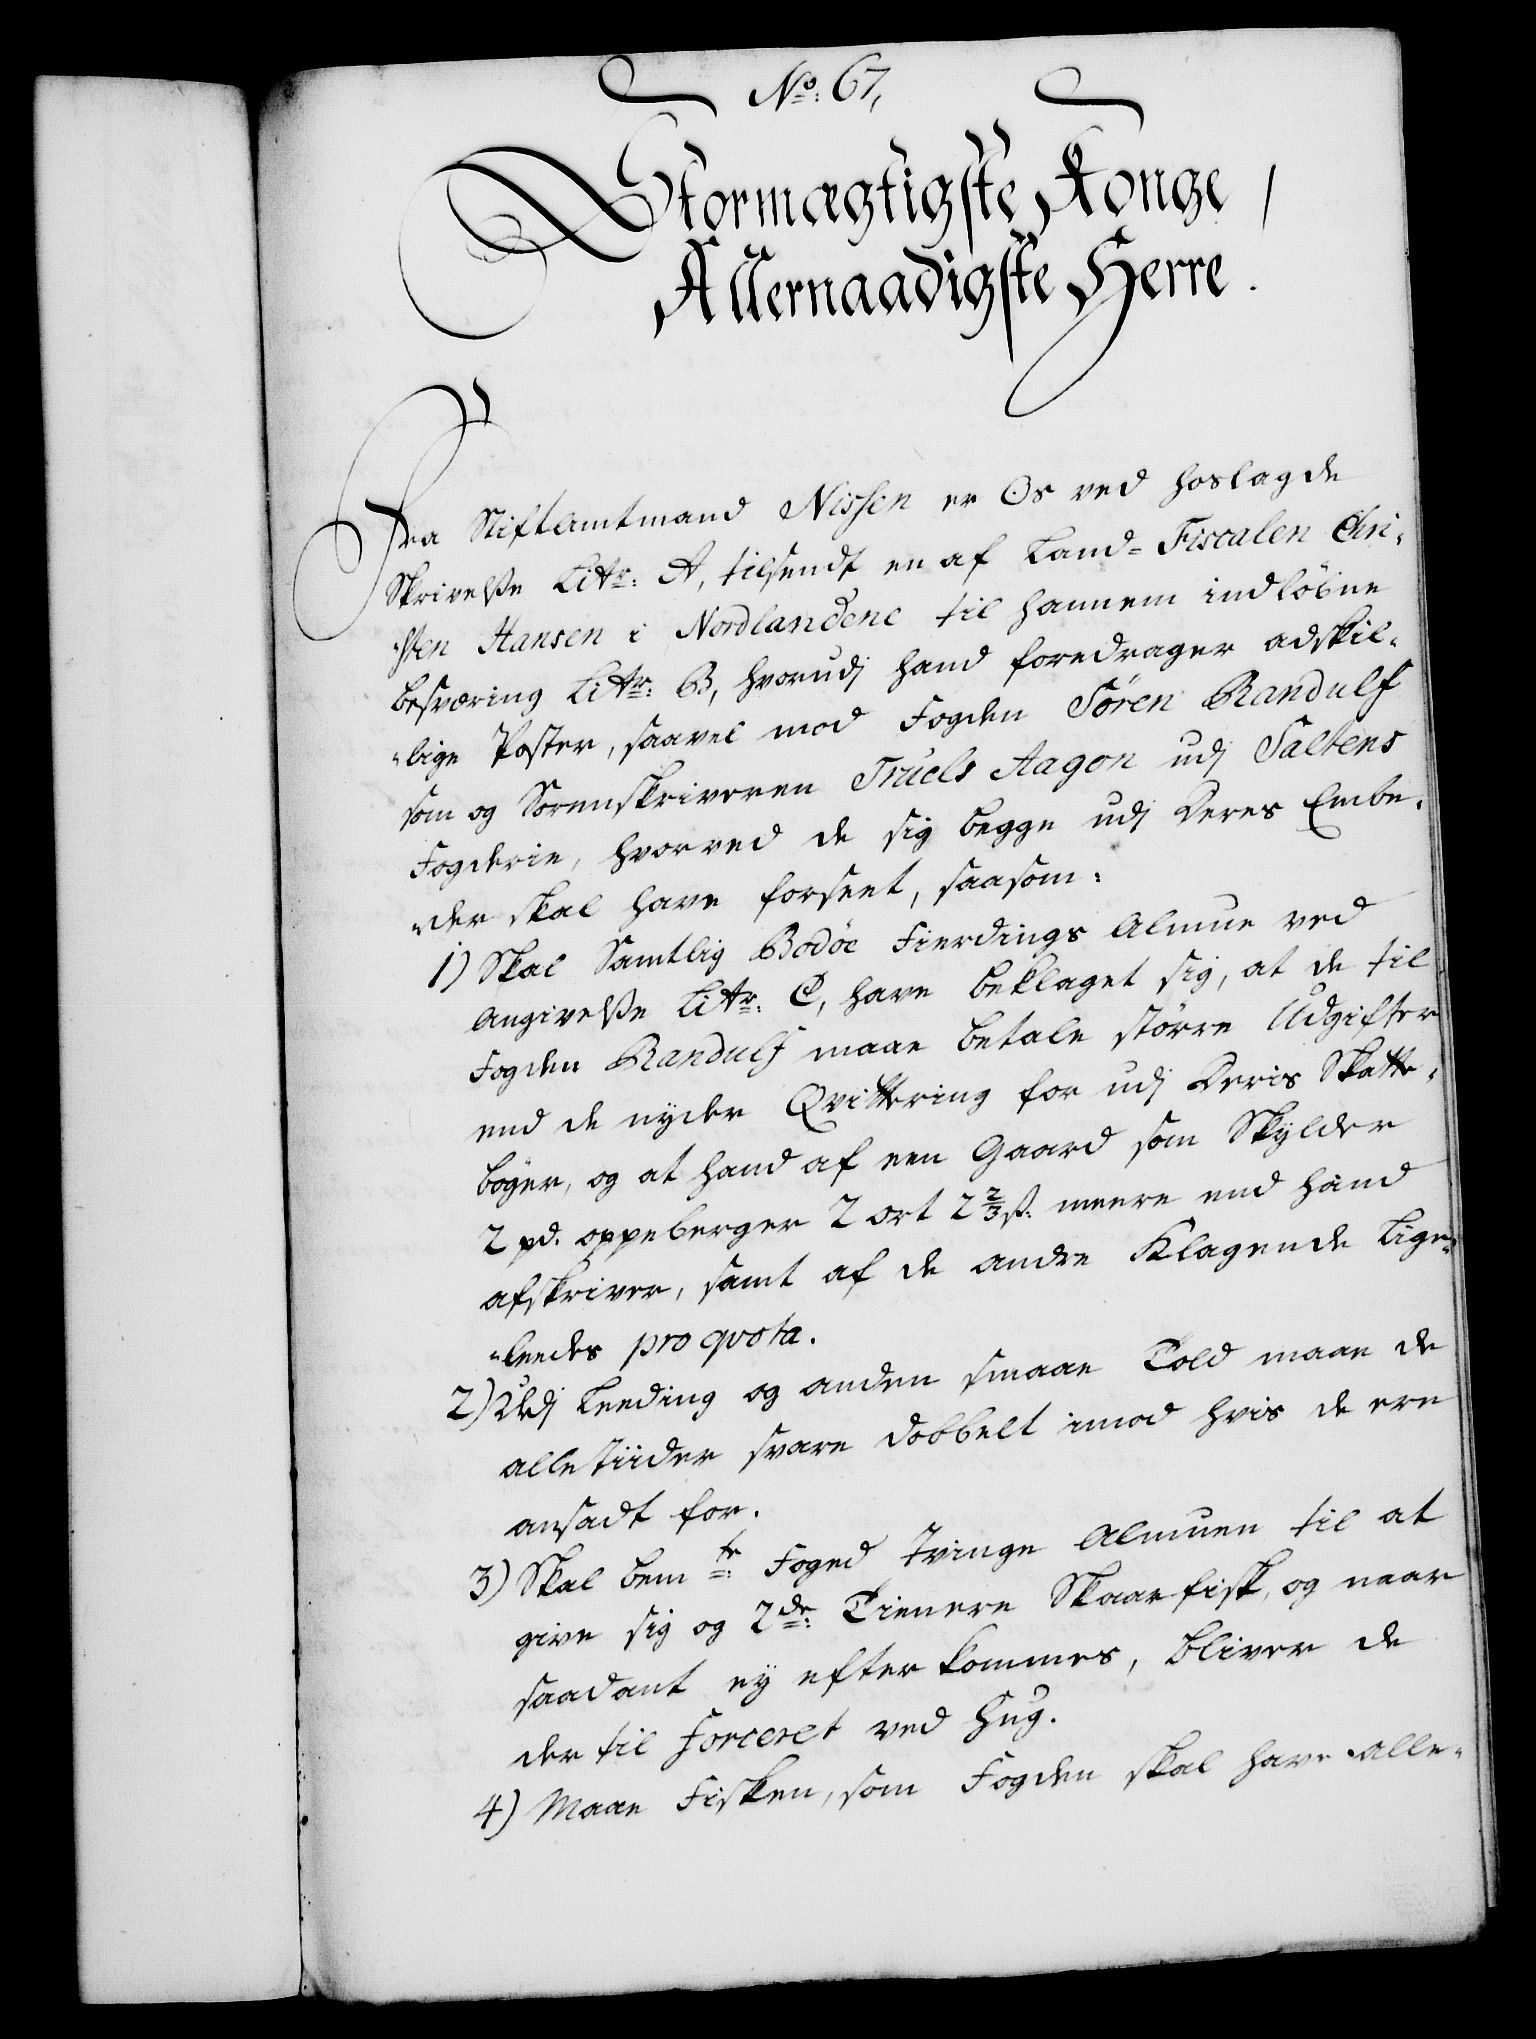 No: 67,
Stormægtigste Konge,
Allernaadigste Herre.
Fra Stiftamtmand Nissen er Os ved hoslagde
Skrivelsse Littr: A, tilsendt en af Land-Fiscalen Chri-
-sten Hansen i Nordlandene til hannem indløbne
besværing Littr: B, hvorudj hand foredrager adskil-
-lige Poster, saavel mod Fogden Søren Randulf
som og Sorenskriveren Truels Aagon udj Saltens
Fogderie, hvorved de sig begge udj Deres Embe-
-der skal have forseet, saasom:
1) Skal Samtlig Bodøe Fierdings Almue ved
Angivelsse Littr: C, have beklaget sig, at de til
Fogden Randulf maae betale større Udgifter
end de nyder Qvittering for udj Deris Skatte-
bøger, og at hand af een Gaard som Skylder
2 pd. oppeberger 2 ort 2 2/3 ß. meere end hand
afskriver, samt af de andre Klagende Lige-
-leedes pro qvota.
2) Udj Leeding og anden smaae Told maae de
alle tiider svare dobbelt imod hvis de ere
ansadt for.
3) Skal bemte: Foged tvinge Almuen til at
give sig og 2de: Tienere Skaarfisk, og naar
saadant ey efterkommes, bliver de
der til forceret ved Hug.
4) Maae Fisken, som Fogden skal have alle-